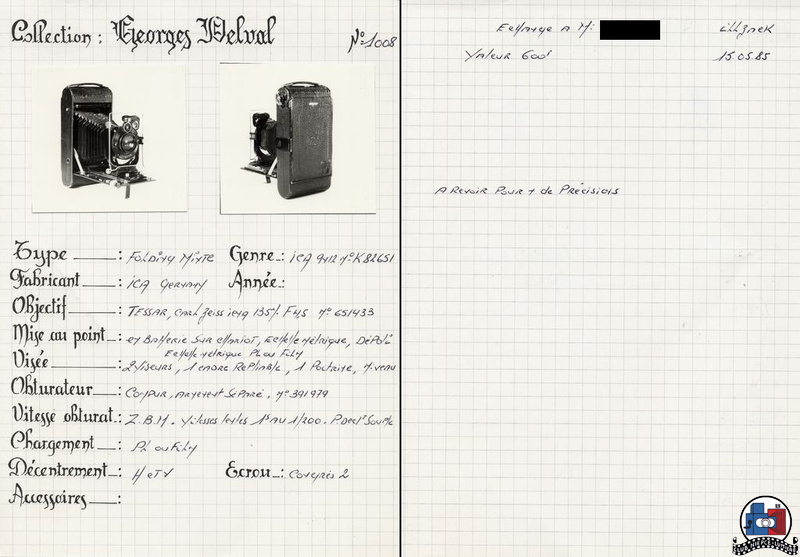 Collection : Georges Delval
N° 1008
Type : Folding Mixte Genre : ICA 9x12 N° K82651
Fabricant : ICA Germany Année :
Objectif : TESSAR, Carl Zeiss Iena 135% F4,5 N° 651433
Mise au point : en Batterie sur chariot, Echelle métrique, Dépoli
Echelle métrique Pl ou Film
Visée : 2 Viseurs, 1 cadre Repliable, 1 Poitrine, Niveau
Obturateur : Compur, armement séparé, N° 391979
Vitesse obturat. : Z.B.M. Vitesses lentes 1s au 1/200. P. Decl' Souple
Chargement : Pl ou Film
Décentrement : H et V Ecrou : Congrès 2
Accessoires :
Echange A M:
Valeur 600f 15.05.85
A Revoir Pour + de Précisions